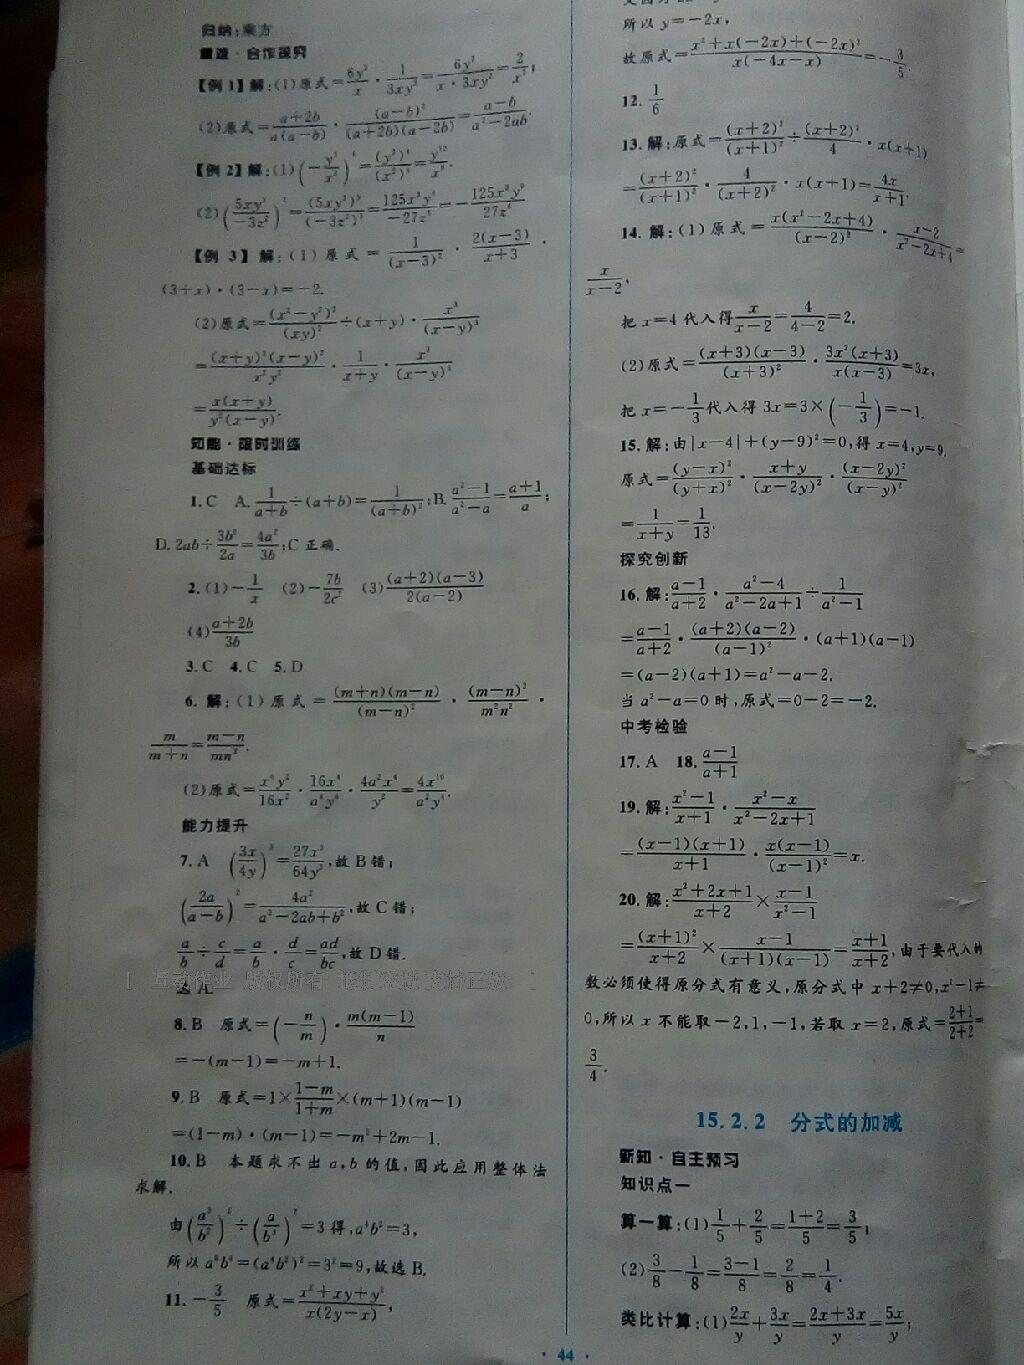 归纳:乘方
重难·合作探究
【例1】解:(1)原式=6y²/x·1/3xy²=6y²/(x·3xy²)=2/x²;
(2)原式=(a+2b)/(a(a-b))·(a-b)²/((a+2b)(a-2b))=(a-b)/(a²-2ab).
【例2】解:(1)(-y³/x²)⁴=(y³)⁴/(x²)⁴=y¹²/x⁸.
【例3】解:(1)原式=1/(x-3)²·2(x-3)/(x+3)·
(3+x)·(3-x)=-2.
(2)原式=(x²-y²)²/(xy)²÷(x+y)·x³/(x-y)³
=(x+y)²(x-y)²/x²y²·1/(x+y)·x³/(x-y)³
=x(x+y)/(y²(x-y)).
知能·限时训练
基础达标
1.C A.1/(a+b)÷(a+b)=1/(a+b)²;B.(a²-1)/(a²-a)=(a+1)/a;
D.2ab÷3b²/2a=4a²/3b;C正确.
2.(1)-1/x (2)-7b/2c² (3)(a+2)(a-3)/2(a-2)
(4)(a+2b)/3b
3.C 4.C 5.D
6.解:(1)原式=(m+n)(m-n)/(m-n)²·(m-n)²/m²n²·
m/(m+n)=(m-n)/mn².
能力提升
7.A (3x/4y)³=27x³/64y³,故B错;
(2a/(a-b))²=4a²/(a²-2ab+b²),故C错;
a/b÷c/d=a/b·d/c=ad/bc,故D错.
选A.
8.B 原式=(-n/m)·m(m-1)/n
=-(m-1)=-m+1.
9.B 原式=1×(1-m)/(1+m)×(m+1)(m-1)
=(1-m)·(m-1)=-m²+2m-1.
10.B 本题求不出a,b的值,因此应用整体法
求解.
由(a³/b²)²÷(a/b³)²=3得,a⁴b²=3,
所以a⁸b⁴=(a⁴b²)²=3²=9,故选B.
11.-3/5 原式=(x²+xy+y²)/(x(2y-x)),
所以y=-2x,
故原式=(x²+x(-2x)+(-2x)²)/(x(-4x-x))=-3/5.
12.1/6
13.解:原式=(x+2)²/(x+1)²÷(x+2)²/4·x(x+1)
=(x+2)²/(x+1)²·4/(x+2)²·x(x+1)=4x/(x+1).
14.解:(1)原式=x(x²-2x+4)/(x-2)²·(x-2)/(x²-2x+4)=
x/(x-2),
把x=4代入得x/(x-2)=4/(4-2)=2.
(2)原式=(x+3)(x-3)/(x+3)²·3x²(x+3)/(x(x-3))=3x,
把x=-1/3代入得3x=3×(-1/3)=-1.
15.解:由|x-4|+(y-9)²=0,得x=4,y=9.
原式=(y-x)²/(y+x)²·(x+y)/(x-2y)²·(x-2y)²/(x-y)²
=1/(x+y)=1/13.
探究创新
16.解:(a-1)/(a+2)·(a²-4)/(a²-2a+1)÷1/(a²-1)
=(a-1)/(a+2)·(a+2)(a-2)/(a-1)²·(a+1)(a-1)
=(a-2)(a+1)=a²-a-2.
当a²-a=0时,原式=0-2=-2.
中考检验
17.A 18.(a-1)/(a+1)
19.解:(x²-1)/(x+1)·(x²-x)/(x²-2x+1)
=(x-1)(x+1)/(x+1)·x(x-1)/(x-1)²=x.
20.解:(x²+2x+1)/(x+2)×(x-1)/(x²-1)
=(x+1)²/(x+2)×(x-1)/((x+1)(x-1))=(x+1)/(x+2),由于要代入的
数必须使得原分式有意义,原分式中x+2≠0,x²-1≠
0,所以x不能取-2,1,-1,若取x=2,原式=(2+1)/(2+2)=
3/4.
15.2.2 分式的加减
新知·自主预习
知识点一
算一算:(1)1/5+2/5=(1+2)/5=3/5;
(2)3/8-1/8=(3-1)/8=2/8=1/4.
类比计算:(1)2x/y+3x/y=(2x+3x)/y=5x/y;
·44·